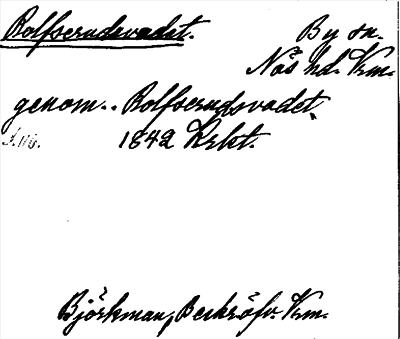 Rolfserudsvadet. By sn.
Näs hd. Vrm.
genom.. Rolfserudsvadet
1842 Lrkt.
Björkman, Beskrifv. Vrm.